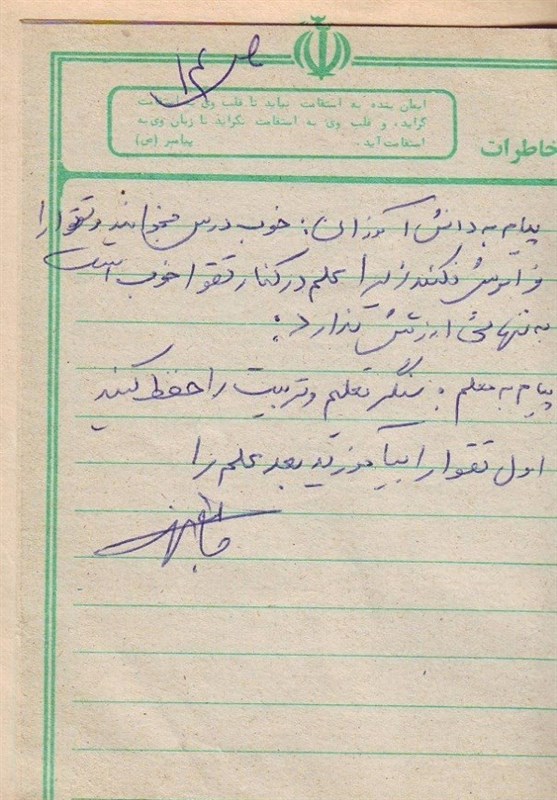 ص ۱۴
ایمان بنده به استقامت نیاید تا قلب وی به استقامت
گراید، و قلب وی به استقامت نگراید تا زبان وی به
استقامت آید.
پیامبر (ص)
خاطرات
پیام به دانش آموزان: خوب درس بخوانید و تقوا را
فراموش نکنند زیرا علم در کنار تقوا خوب است
به تنهایی ارزش ندارد:
پیام به معلم: سنگر تعلیم و تربیت را حفظ کنید
اول تقوا را بیاموزید بعد علم را